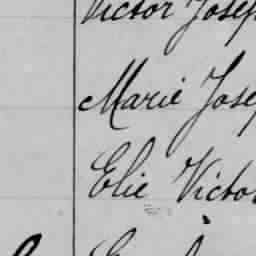 Victor Josep
Marie Jose
Elie Victo